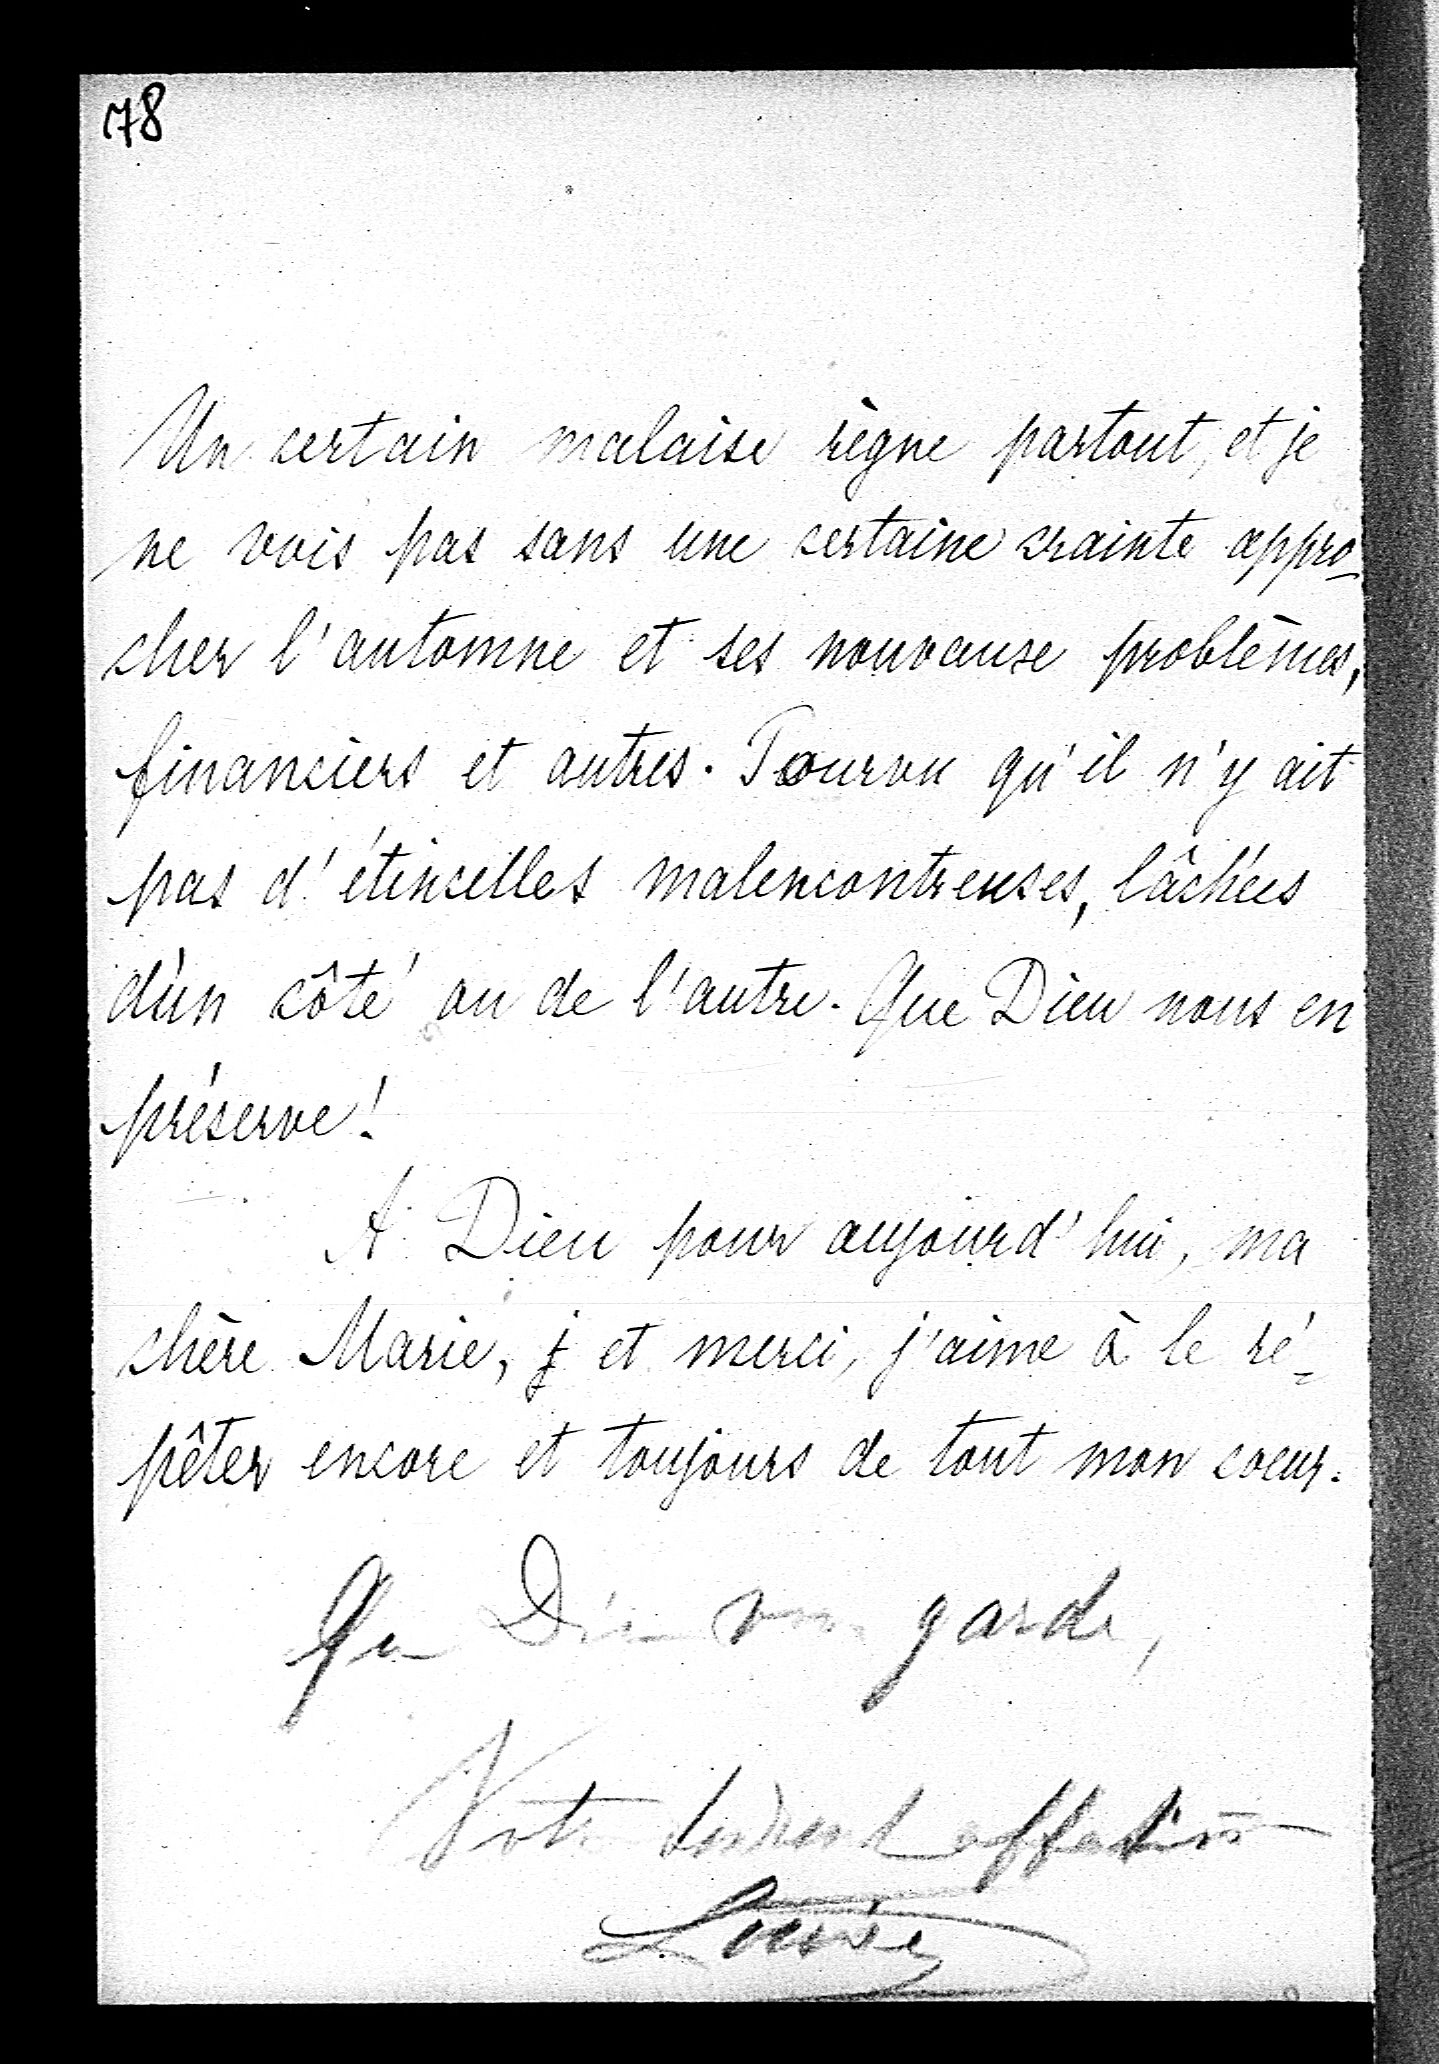 78
Un certain malaise règne partout, et je
ne vois pas sans une certaine crainte appro-
cher l'automne et ses nouveaux problèmes,
financiers et autres. Pourvu qu'il n'y ait
pas d'étincelles malencontreuses, lâchées
d'un côté ou de l'autre. Que Dieu nous en
préserve!
A Dieu pour aujourd'hui, ma
chère Marie, j et merci, j'aime à le ré-
pêter encore et toujours de tout mon coeur.
Que Dieu vous garde,
Votre tendrement affectionnée
Louise